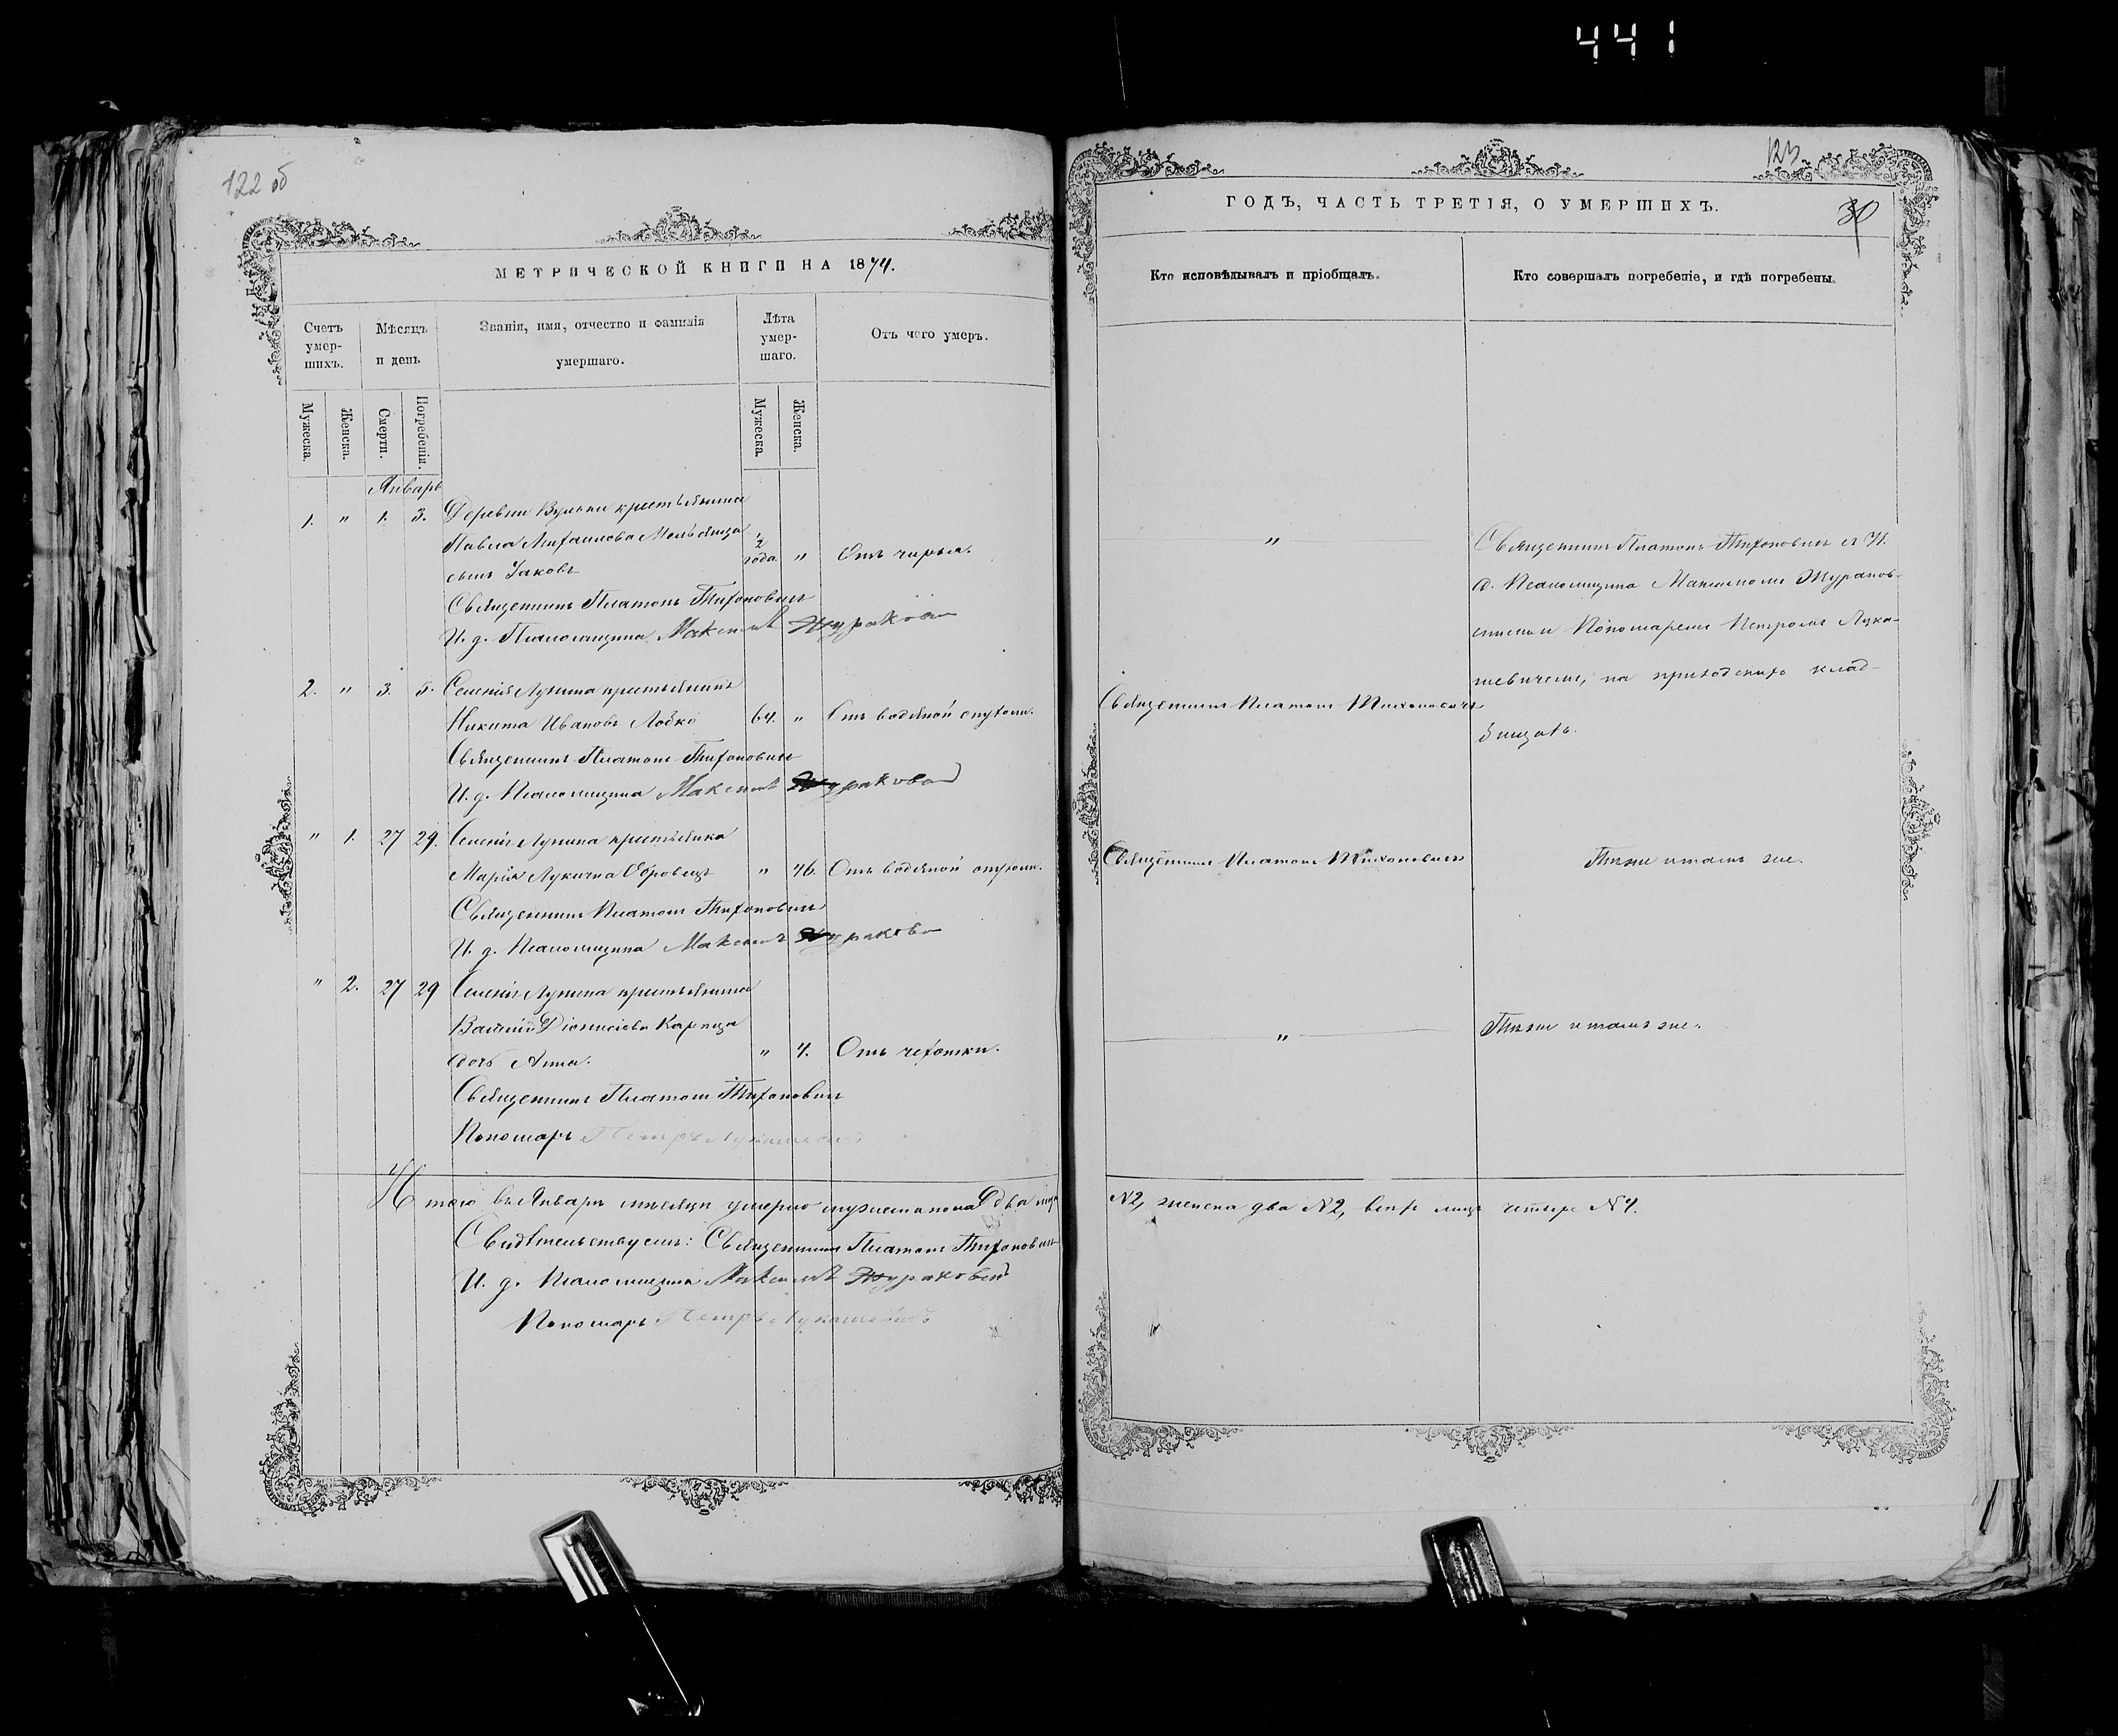 441
122 об
МЕТРИЧЕСКОЙ КНИГИ НА 1874.
Счетъ умершихъ.
Мѣсяцъ и день
Званія, имя, отчество и фамилія умершаго.
Лѣта умершаго.
Отъ чего умеръ.
Мужеска.
Женска.
Смерти.
Погребенія.
Мужеска.
Женска.
Январь
1. " 1. 3. Деревни Вульки крестьянина
Павла Михаилова сынъ Іаковъ
2 года " Отъ чирья.
Священникъ Платонъ Тихоновичъ
И. д. Псаломщика Максимъ Жураковскій
2. " 3. 5. Селенія Лунина крестьянинъ
Никита Ивановъ Лобко 64. " Отъ водяной опухоли.
Священникъ Платонъ Тихоновичъ
И. д. Псаломщика Максимъ Жураковскій
" 1. 27 29. Селенія Лунина крестьянка
Марія Лукична " 46. Отъ водяной опухоли.
Священникъ Платонъ Тихоновичъ
И. д. Псаломщика Максимъ Жураковскій
" 2. 27 29 Селенія Лунина крестьянина
Василія Діонисіева
дочь Анна. " 4. Отъ чехотки.
Священникъ Платонъ Тихоновичъ
Пономарь Петръ Лукашевичъ
Итого въ Январѣ мѣсяцѣ умерло мужеска пола два
Свидѣтельствуемъ: Священникъ Платонъ Тихоновичъ
И. д. Псаломщика Максимъ Жураковскій
Пономарь Петръ Лукашевичъ
123
ГОДЪ, ЧАСТЬ ТРЕТІЯ, О УМЕРШИХЪ.
30
Кто исповѣдывалъ и пріобщалъ.
Кто совершалъ погребеніе, и гдѣ погребены.
"
Священникъ Платонъ Тихоновичъ съ И.
д. Псаломщика Максимомъ Жураков-
скимъ и Пономаремъ Петромъ Лука-
шевичемъ, на приходскихъ клад-
бищахъ.
Священникъ Платонъ Тихоновичъ
Священникъ Платонъ Тихоновичъ
Тѣже и тамъ же.
"
Тѣже и тамъ же.
№2, женска два №2, всѣхъ лицъ четыре №4.